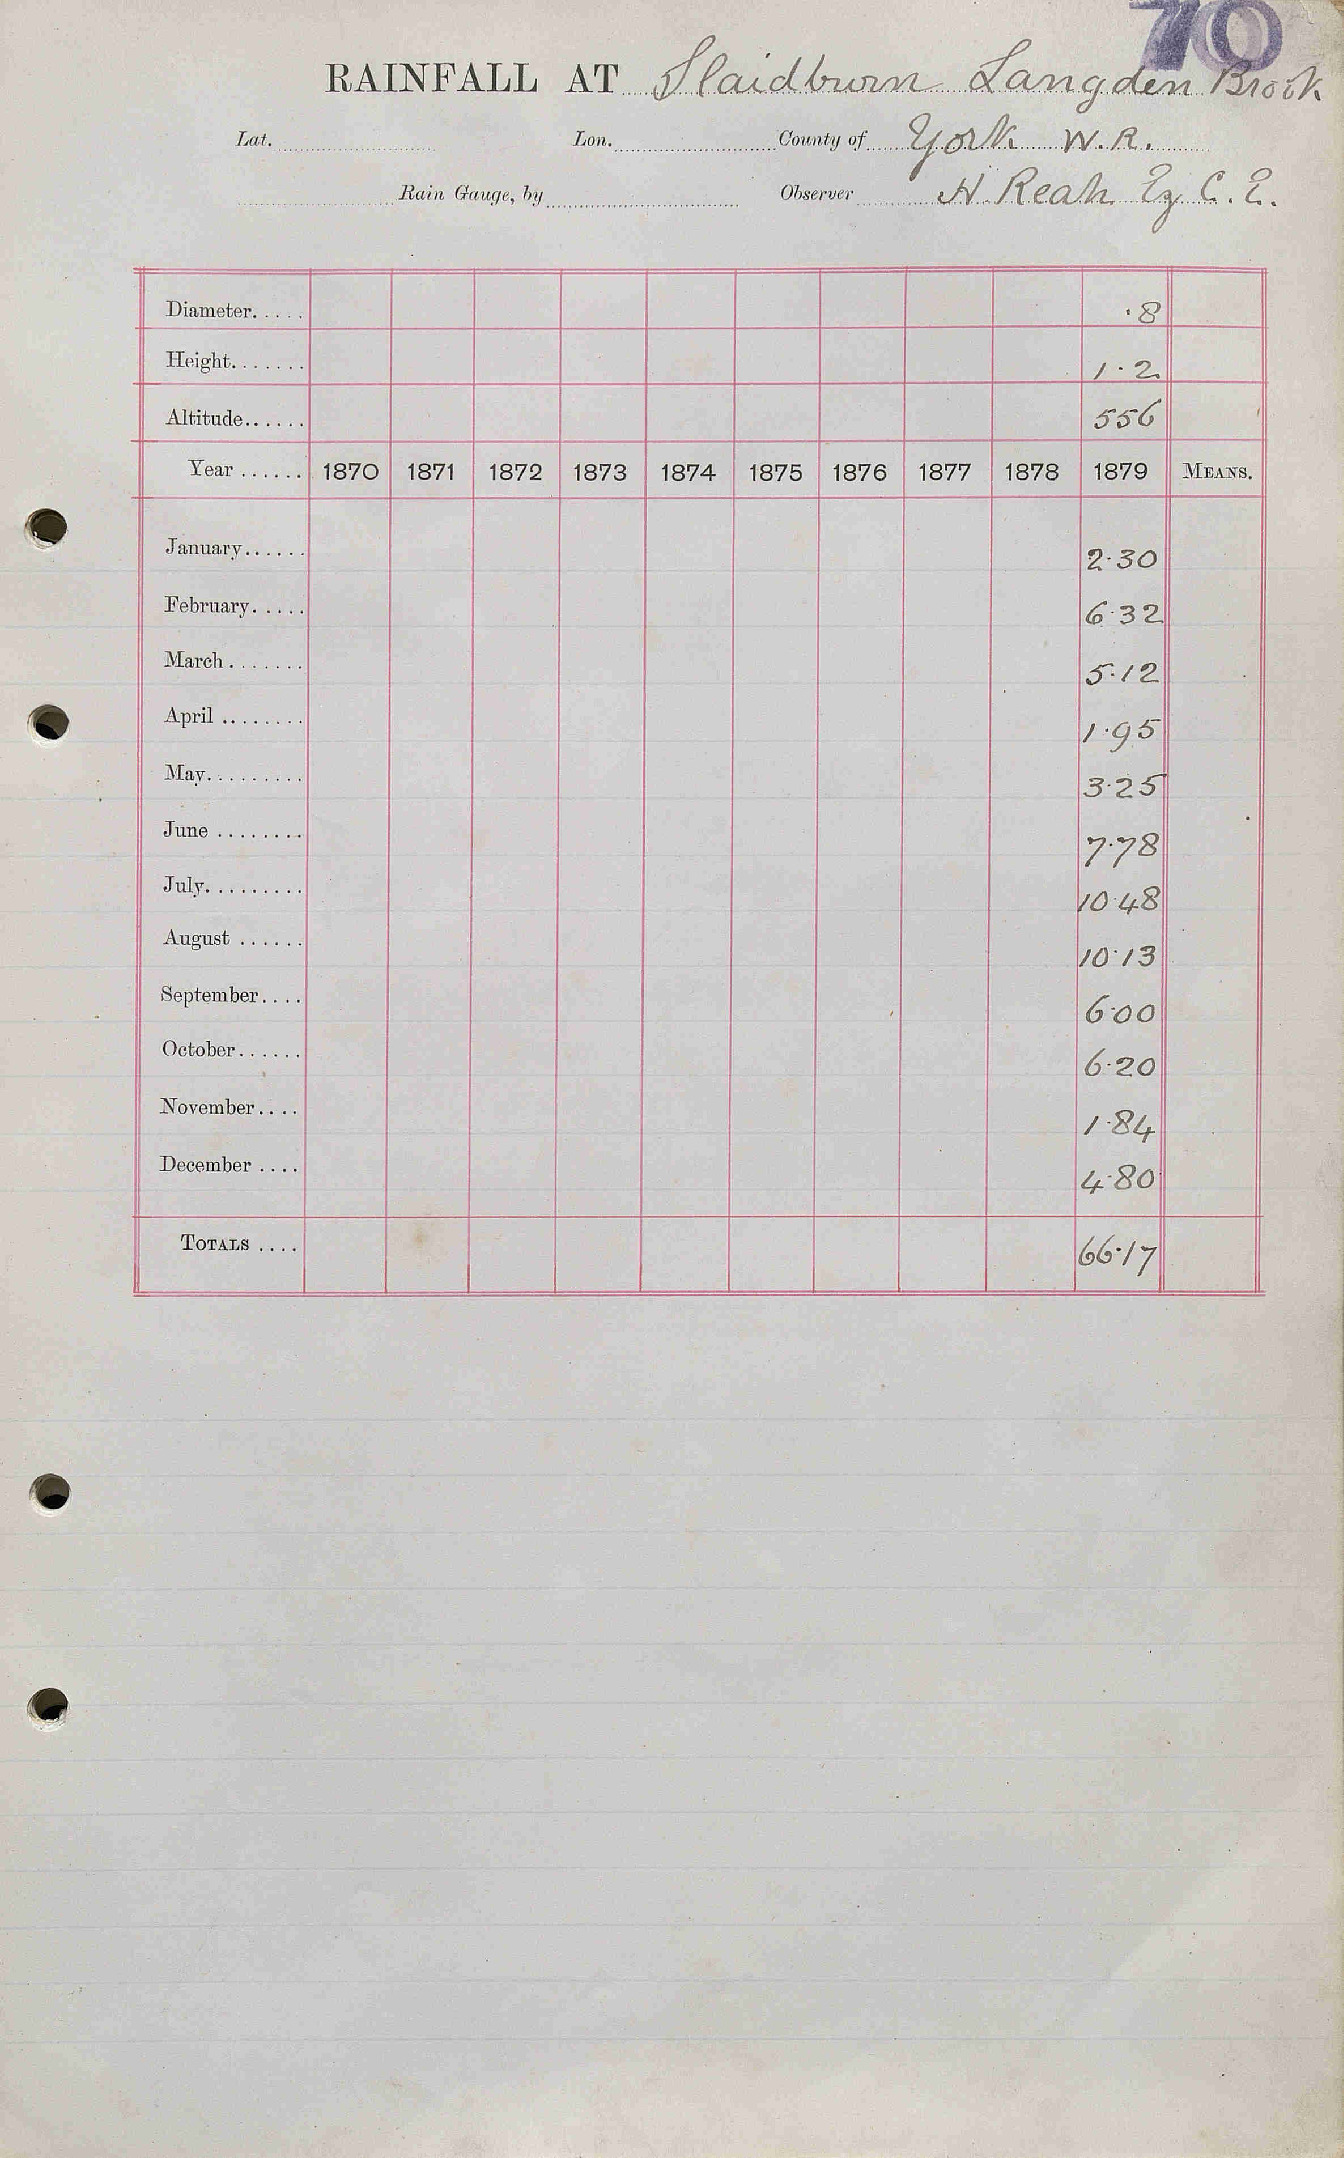 70
RAINFALL AT Slaidburn Langden Brook
Lat. Lon. County of York W.R.
Rain Gauge, by Observer H. Reah Eq C.E.
Diameter..... .8
Height....... 1.2
Altitude...... 556
Year ...... 1870 1871 1872 1873 1874 1875 1876 1877 1878 1879 MEANS.
January...... 2.30
February..... 6.32
March....... 5.12
April ........ 1.95
May......... 3.25
June ........ 7.78
July......... 10.48
August ...... 10.13
September.... 6.00
October...... 6.20
November.... 1.84
December .... 4.80
TOTALS .... 66.17